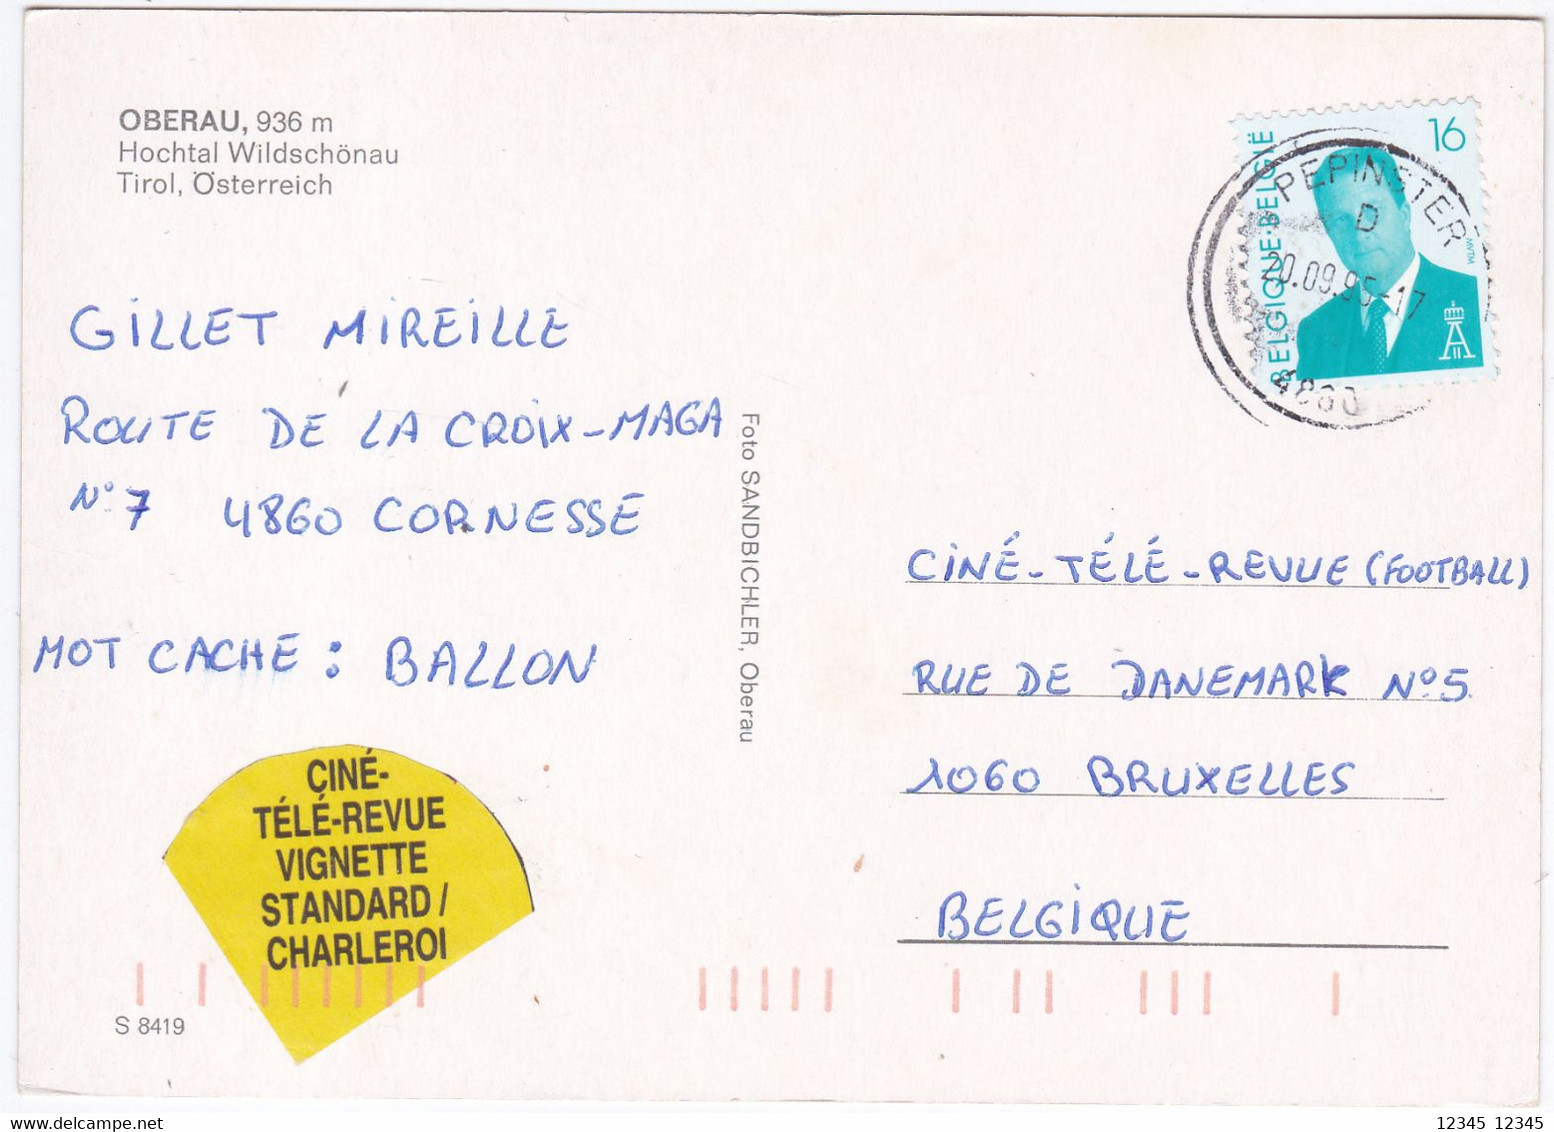 OBERAU, 936 m
Hochtal Wildschönau
Tirol, Österreich
16
BELGIQUE·BELGIË
MVTM
PEPINSTER
D
20.09.95-17
4860
GILLET MIREILLE
ROUTE DE LA CROIX-MAGA
N° 7 4860 CORNESSE
MOT CACHE : BALLON
Foto SANDBICHLER, Oberau
CINÉ-TÉLÉ-REVUE (FOOTBALL)
RUE DE DANEMARK N°5
1060 BRUXELLES
BELGIQUE
CINÉ-
TÉLÉ-REVUE
VIGNETTE
STANDARD/
CHARLEROI
S 8419
12345 12345